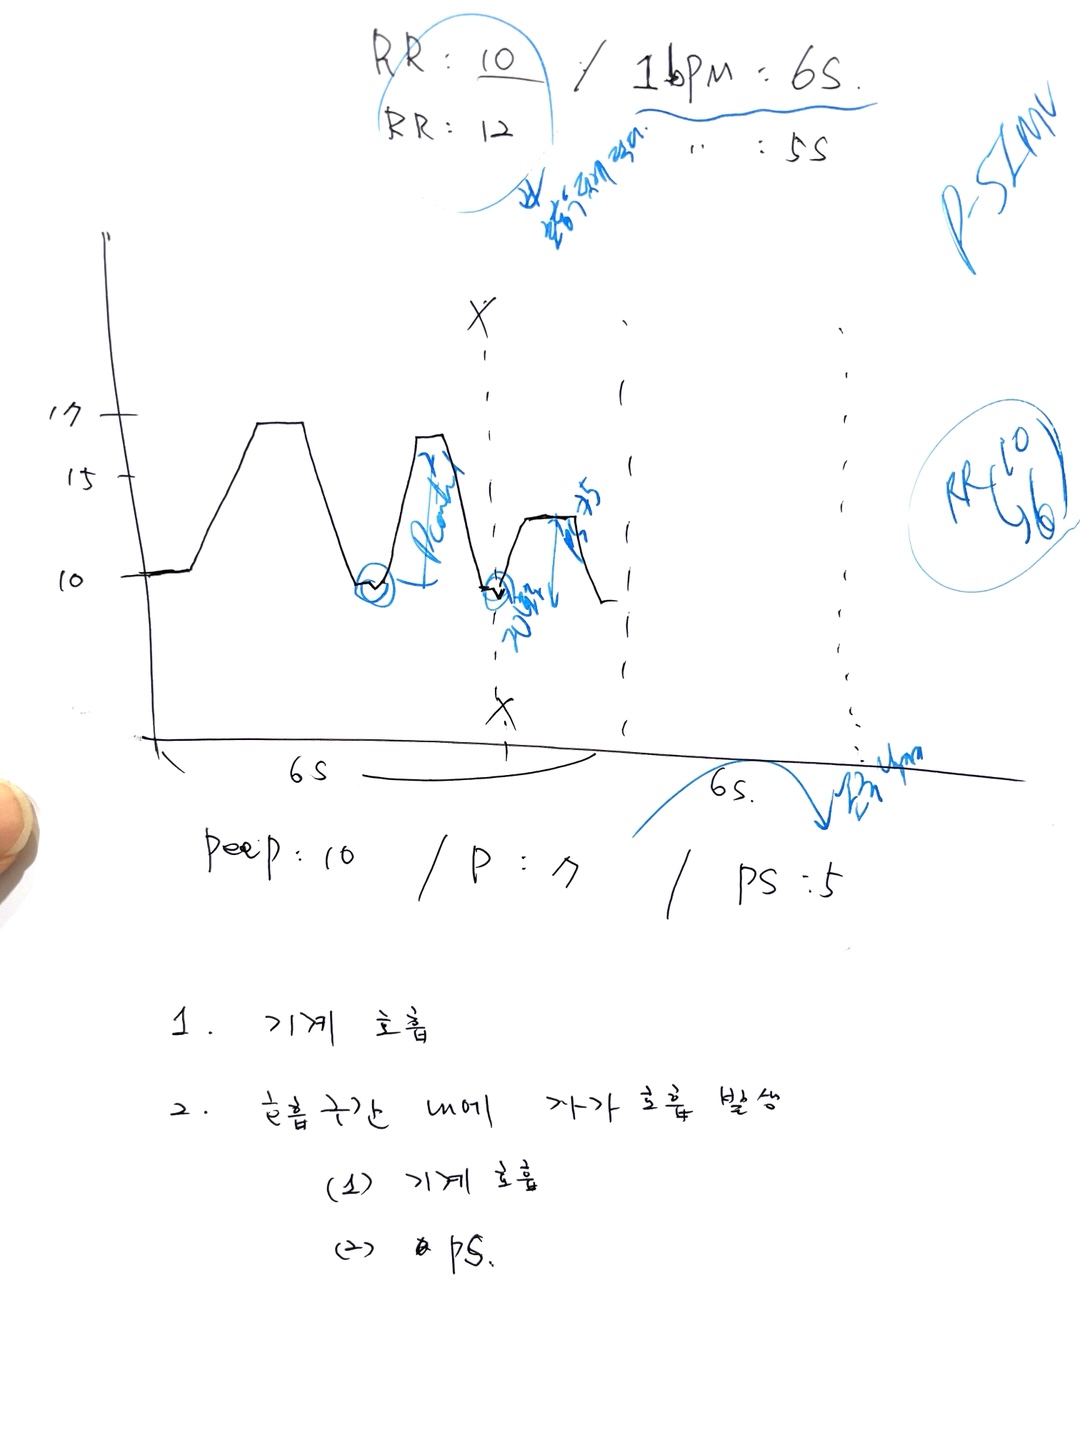 RR : 10 / 1bpm : 6s.
RR : 12 〃 : 5s
P-SIMV
X
17
15
10
Pcontrol
PS 75
RR 10
16
X
6s
6s.
peep : 10 / P : 7 / PS : 5
1. 기계 호흡
2. 호흡 구간 내에 자가 호흡 발생
(1) 기계 호흡
(2) PS.